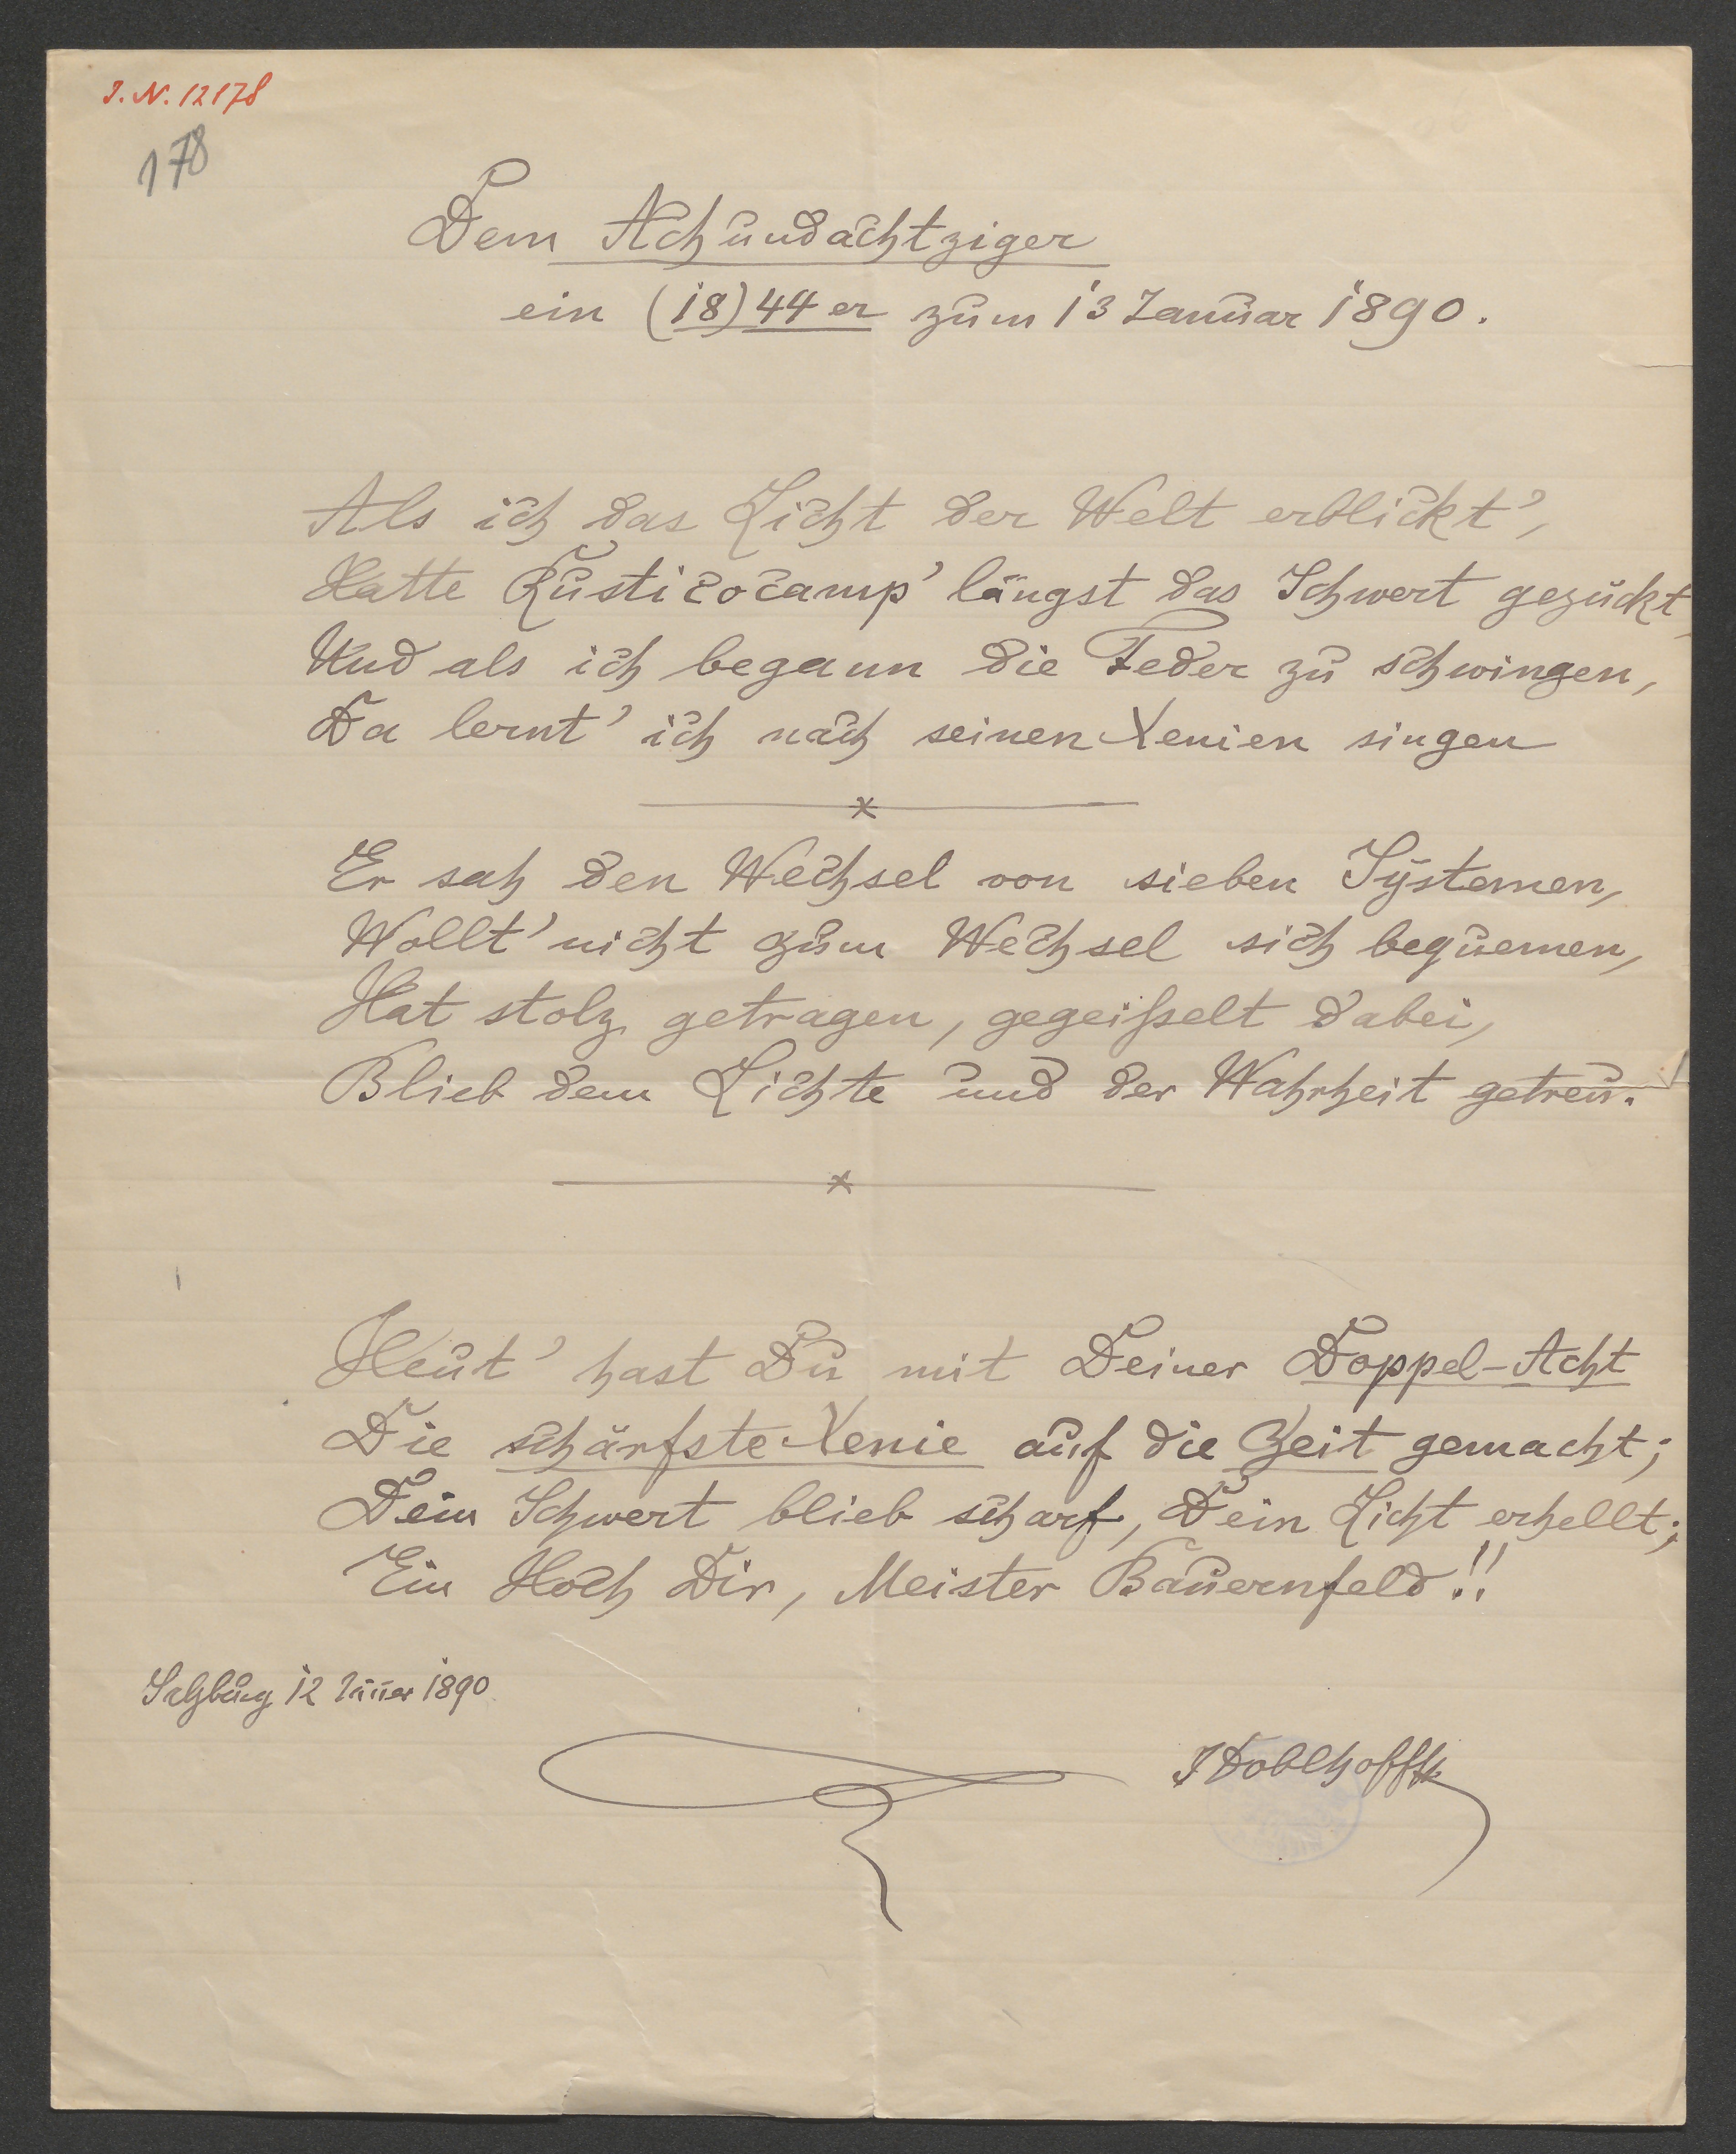 J. N. 12178
178
Dem Achundachtziger
ein (18) 44 er zum 13 Januar 1890.
Als ich das Licht der Welt erblickt',
Hatte Rusticocamp' längst das Schwert gezückt,
Und als ich begann die Feder zu schwingen,
Da lernt' ich nach seinen Xenien singen
Er sah den Wechsel von sieben Systemen,
Wollt' nicht zum Wechsel sich bequemen,
Hat stolz getragen, gegeißelt dabei,
Blieb dem Lichte und der Wahrheit getreu.
Heut' hast Du mit Deiner Doppel-Acht
Die schärfste Xenie auf die Zeit gemacht;
Dein Schwert blieb scharf, Dein Licht erhellt;
Ein Hoch Dir, Meister Bauernfeld!!
Salzburg 12 Jänner 1890
J Doblhoff